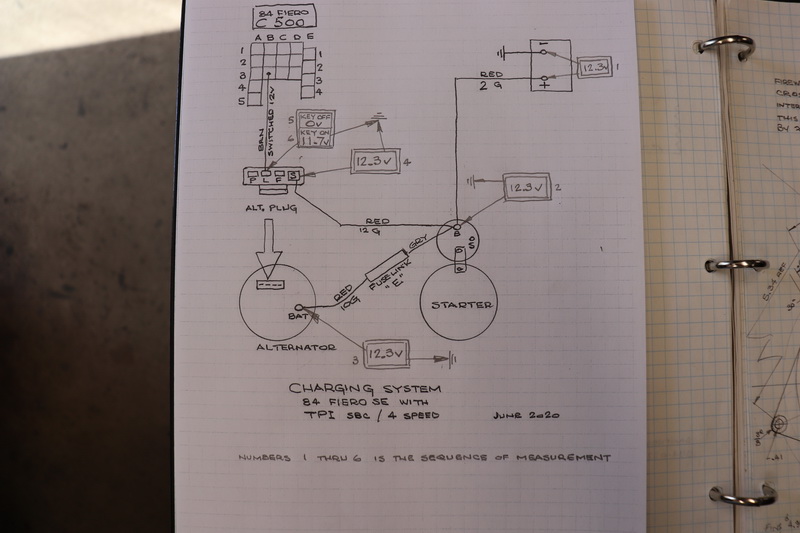 84 FIERO
C 500
A B C D E
1
2
3
4
5
1
2
3
4
BRN
SWITCHED 12V
5
6
KEY OFF
0V
KEY ON
11.7V
12.3V
4
P L F S
ALT. PLUG
RED
12 G
RED
2 G
−
+
12.3V
1
12.3V
2
B
S
GRY
FUSE LINK
"E"
RED
10G
BAT
ALTERNATOR
STARTER
3
12.3V
CHARGING SYSTEM
84 FIERO SE WITH
TPI SBC / 4 SPEED
JUNE 2020
NUMBERS 1 THRU 6 IS THE SEQUENCE OF MEASUREMENT
5.34 REF